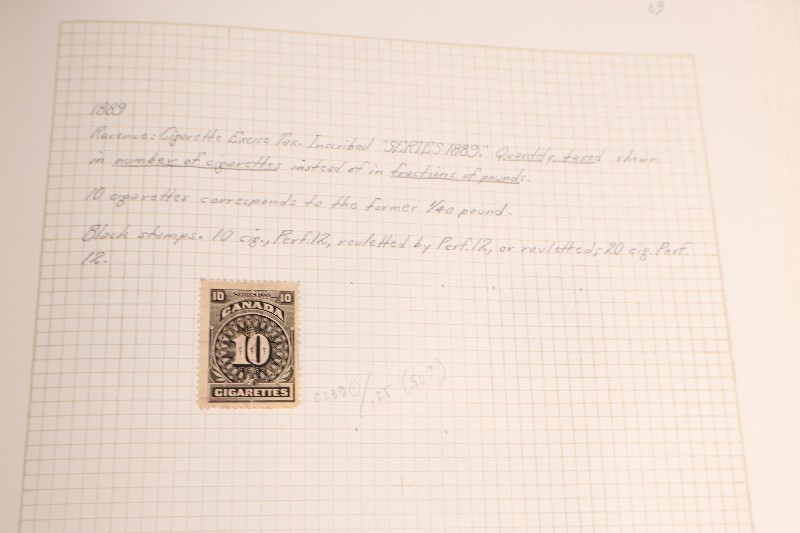 23
1889
Revenue: Cigarette Excise Tax. Inscribed "SERIES 1889." Quantity taxed shown
in number of cigarettes instead of in fractions of pounds.
10 cigarettes corresponds to the former 1/40 pound.
Black stamps. 10 cig., Perf.12, rouletted by Perf.12, or rouletted; 20 cig. Perf.
12.
10 10
CANADA
10
CIGARETTES
.25